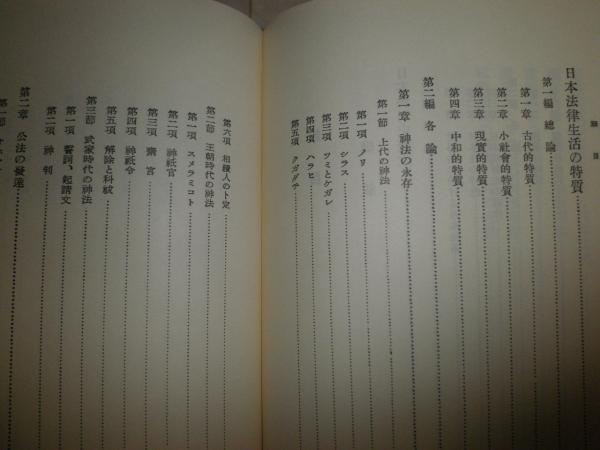 目次
日本法律生活の特質
第一編 總論
第一章 古代的特質
第二章 小社會的特質
第三章 現實的特質
第四章 中和的特質
第二編 各論
第一章 神法の永存
第一節 上代の神法
第一項 ノリ
第二項 シラス
第三項 ツミとケガレ
第四項 ハラヒ
第五項 クガダチ
第六項 相續人の卜定
第二節 王朝時代の神法
第一項 スメラミコト
第二項 神祇官
第三項 齋宮
第四項 神祇令
第五項 解除と科祓
第三節 武家時代の神法
第一項 誓詞、起請文
第二項 神判
第二章 公法の變遷
第一節